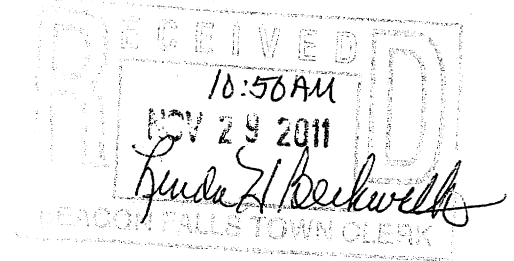 RECEIVED
10:50AM
NOV 29 2011
Linda H Beckwith
BEACON FALLS TOWN CLERK